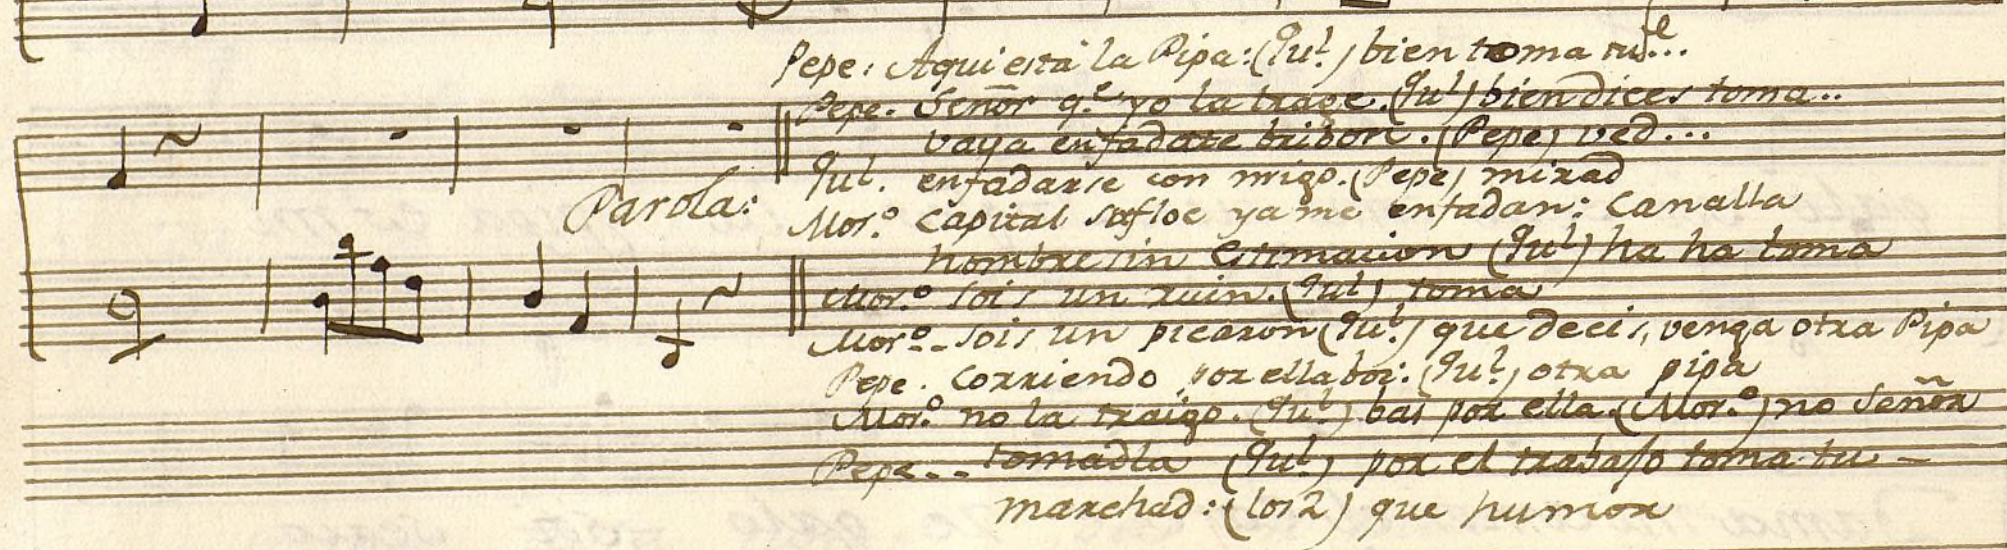 Pepe: Aqui esta la Pipa: (Jul.) bien toma tu...
Pepe. Señor q.e yo la trage. (Jul) bien dices toma..
vaya enfadate bribon. (Pepe) ved...
Jul. enfadarse con migo. (Pepe) mirad
Parola:
Mor.o Capital ya me enfadan: Canalla
hombre sin estimacion (Jul) ha ha toma
Mor.o sois un ruin. (Jul) toma
Mor.o -- sois un picaron (Jul.) que decis, venga otra Pipa
Pepe. Corriendo por ella boi: (Jul.) otra pipa
Mor.o no la traigo. (Jul) bas por ella. (Mor.o) no Señor
Pepe -- tomadla (Jul) por el trabajo toma tu -
marchad: (los 2) que humor